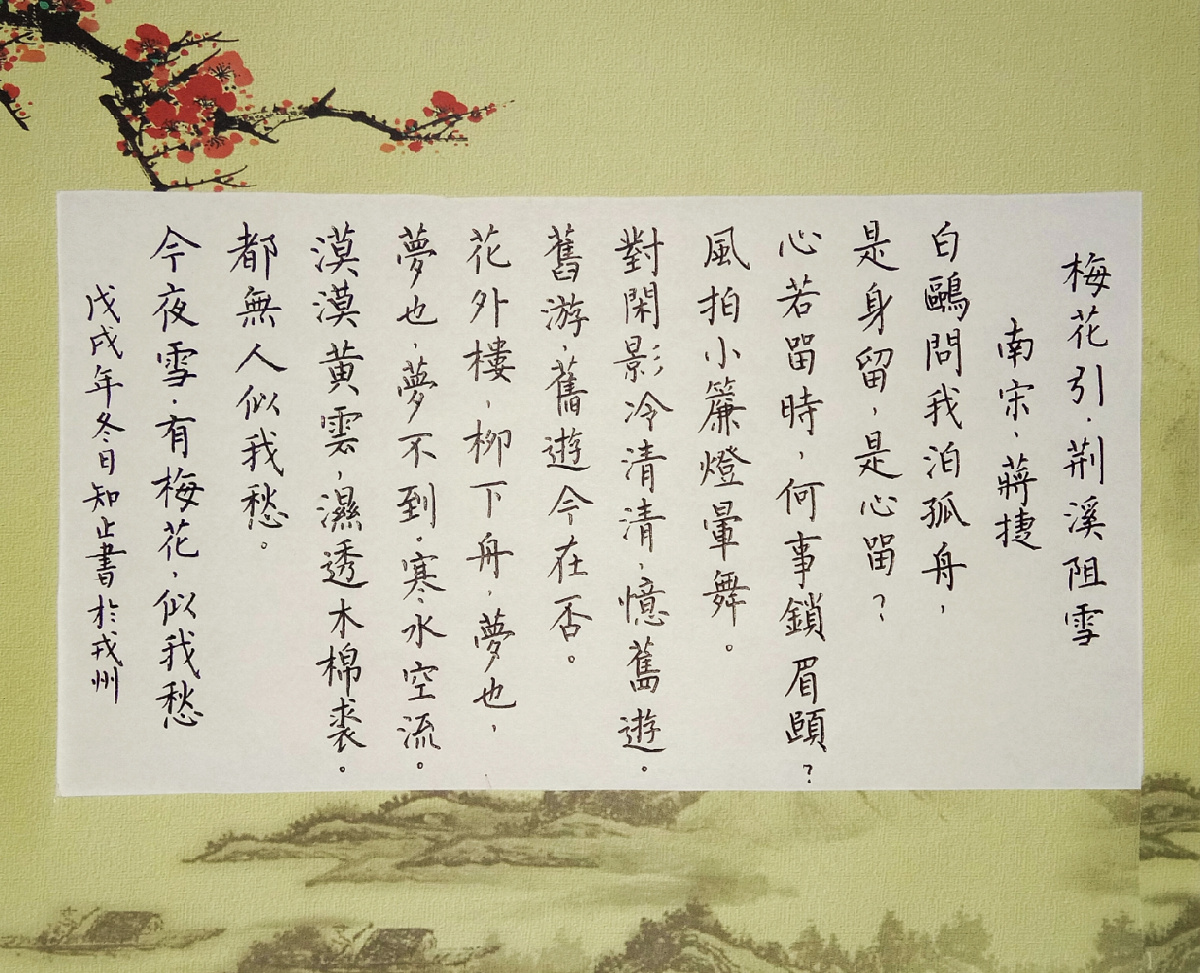 梅花引·荆溪阻雪
南宋·蔣捷
白鷗問我泊孤舟，
是身留，是心畱？
心若畱時，何事鎖眉頭？
風拍小簾燈暈舞。
對閑影冷清清，憶舊遊。
舊游，舊遊今在否。
花外樓，柳下舟，夢也，
夢也，夢不到·寒水空流。
漠漠黃雲，濕透木棉裘。
都無人似我愁。
今夜雪·有梅花，似我愁
戊戌年冬日知止書於戎州